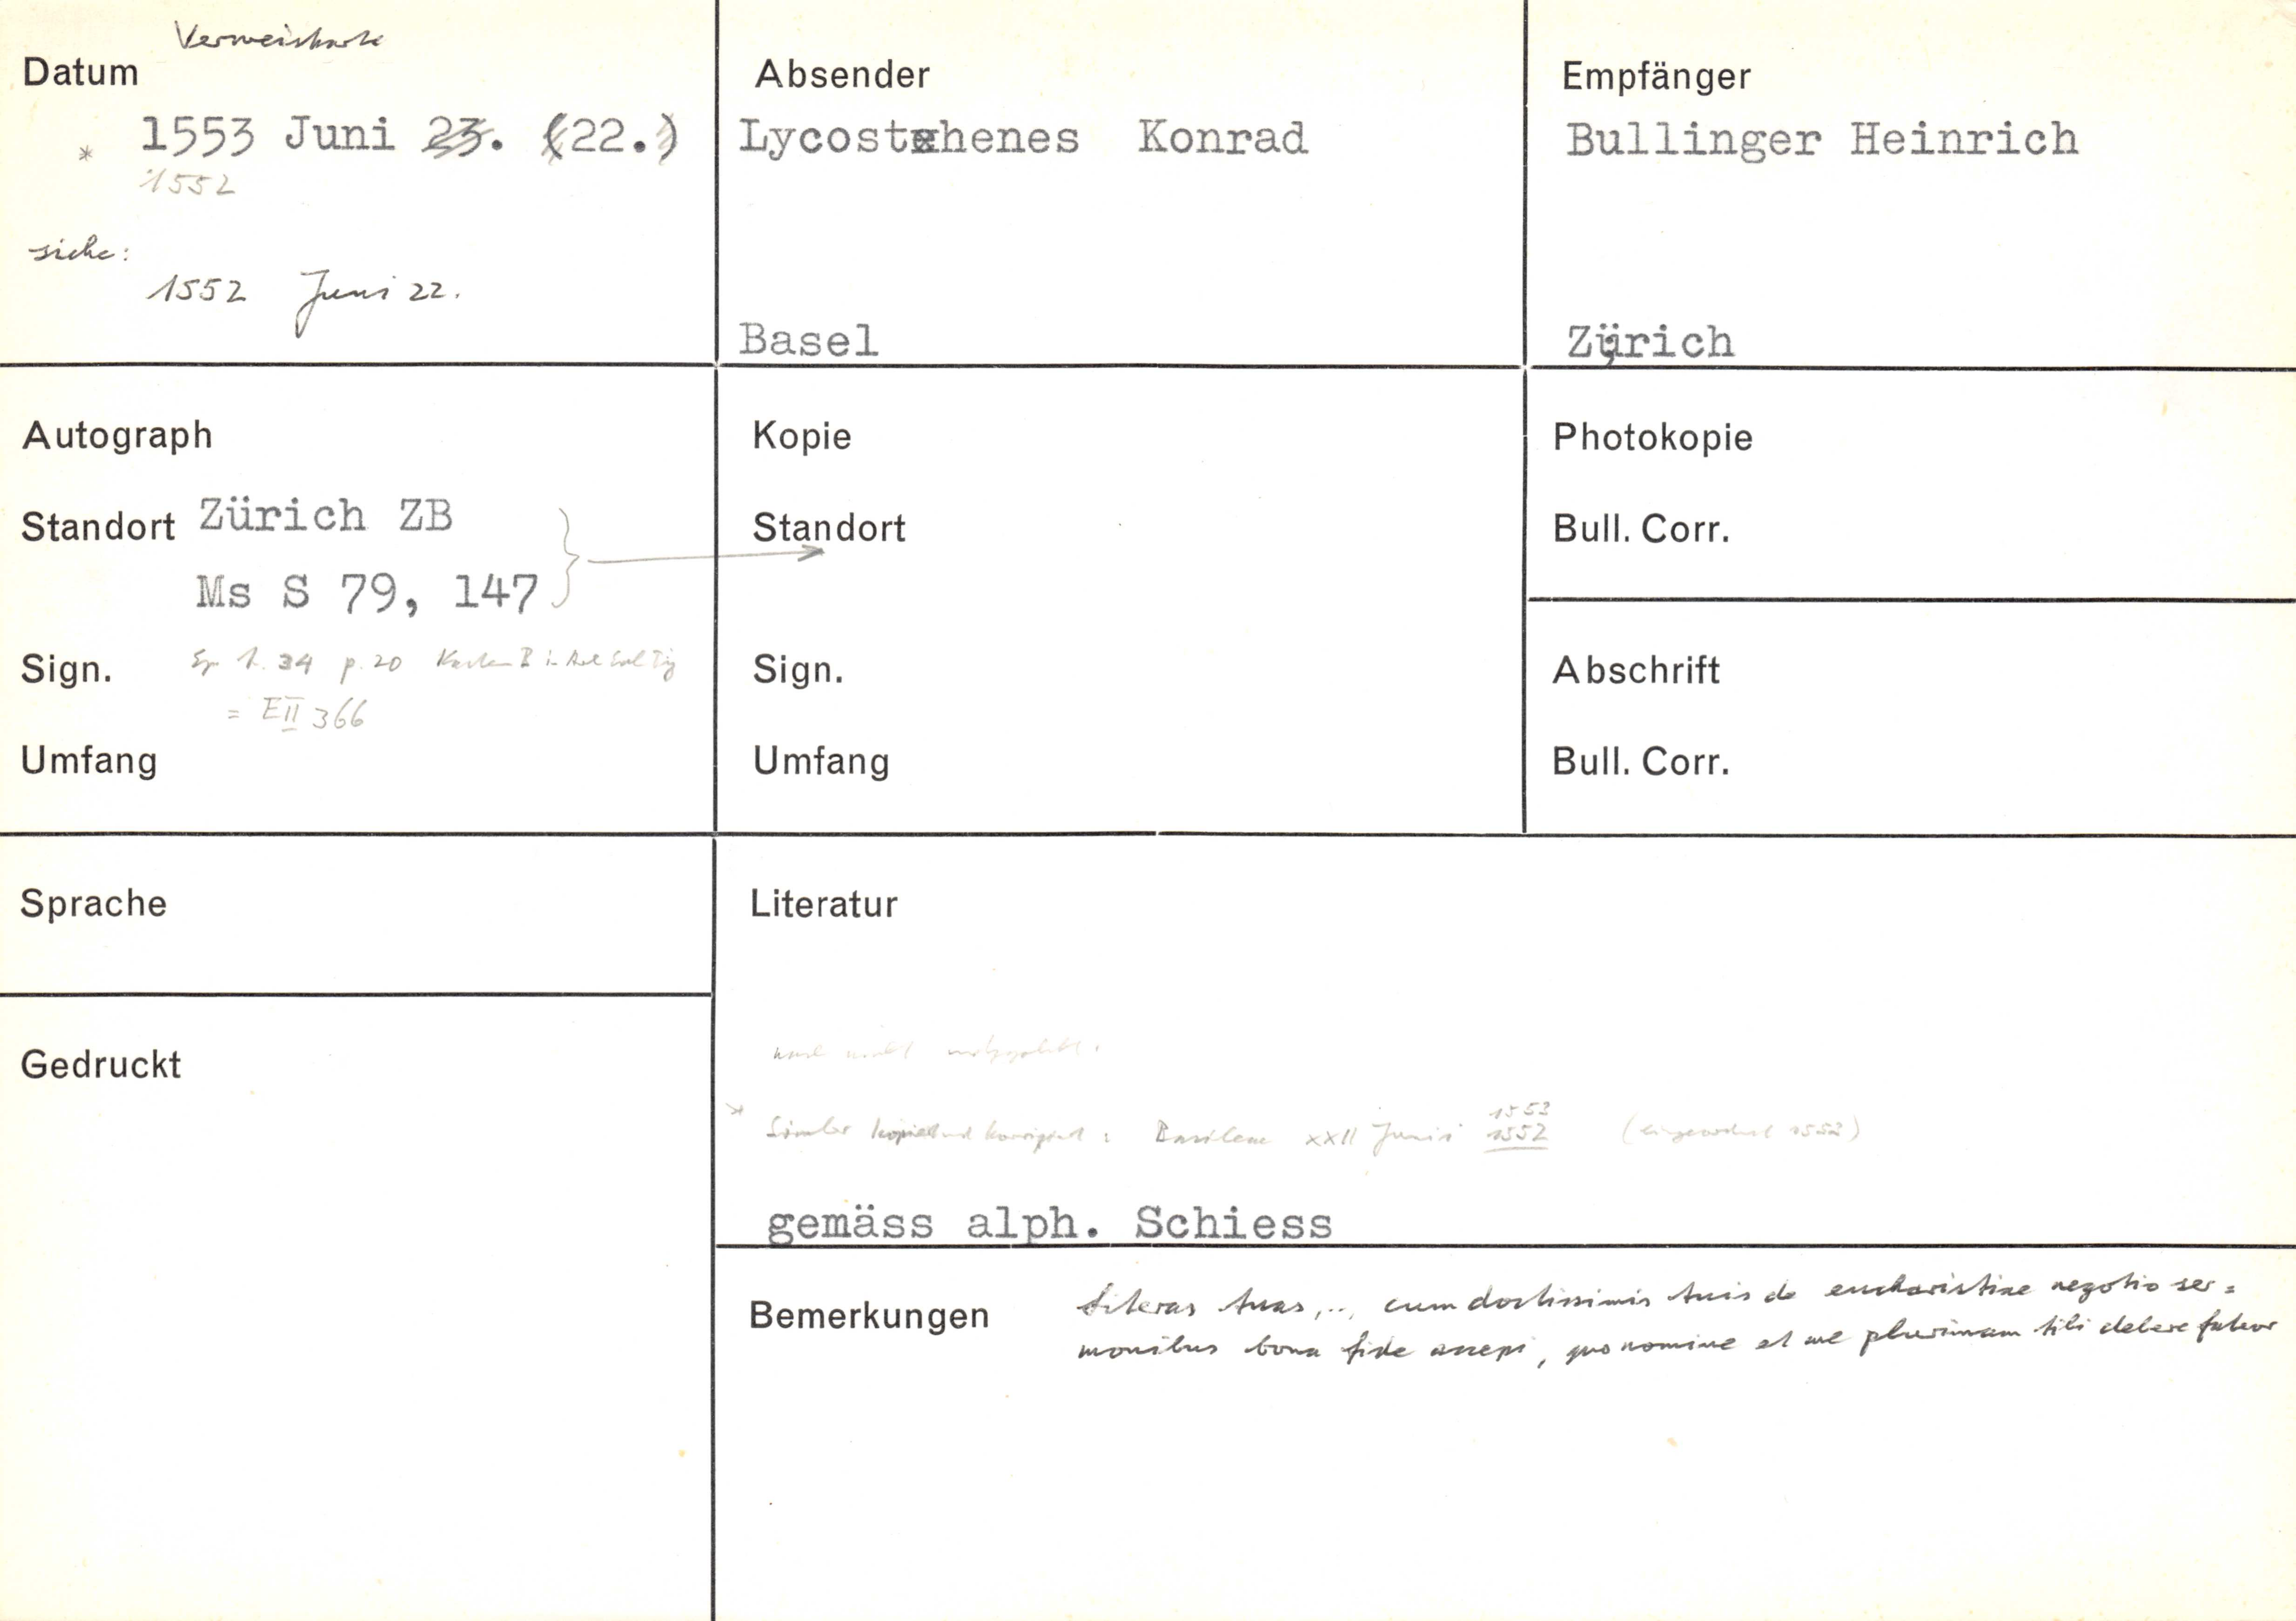 Verweiskarte
Datum
* 1553 Juni 23. (22.)
1552
siehe:
1552 Juni 22.
Absender
Lycosthenes Konrad
Basel
Empfänger
Bullinger Heinrich
Zürich
Autograph
Standort Zürich ZB
Ms S 79, 147
Sign. Ep. 1. 34 p. 20
= E II 366
Umfang
Kopie
Standort
Sign.
Umfang
Photokopie
Bull. Corr.
Abschrift
Bull. Corr.
Sprache
Gedruckt
Literatur
* Simler kopiert und korrigiert: Basileae XXII Junii 1553
1552 (eingeordnet 1552)
gemäss alph. Schiess
Bemerkungen
Literas tuas, .., cum doctissimis tuis de eucharistiae negotio ser=
monibus bona fide accepi, quo nomine et me plurimum tibi debere fateor